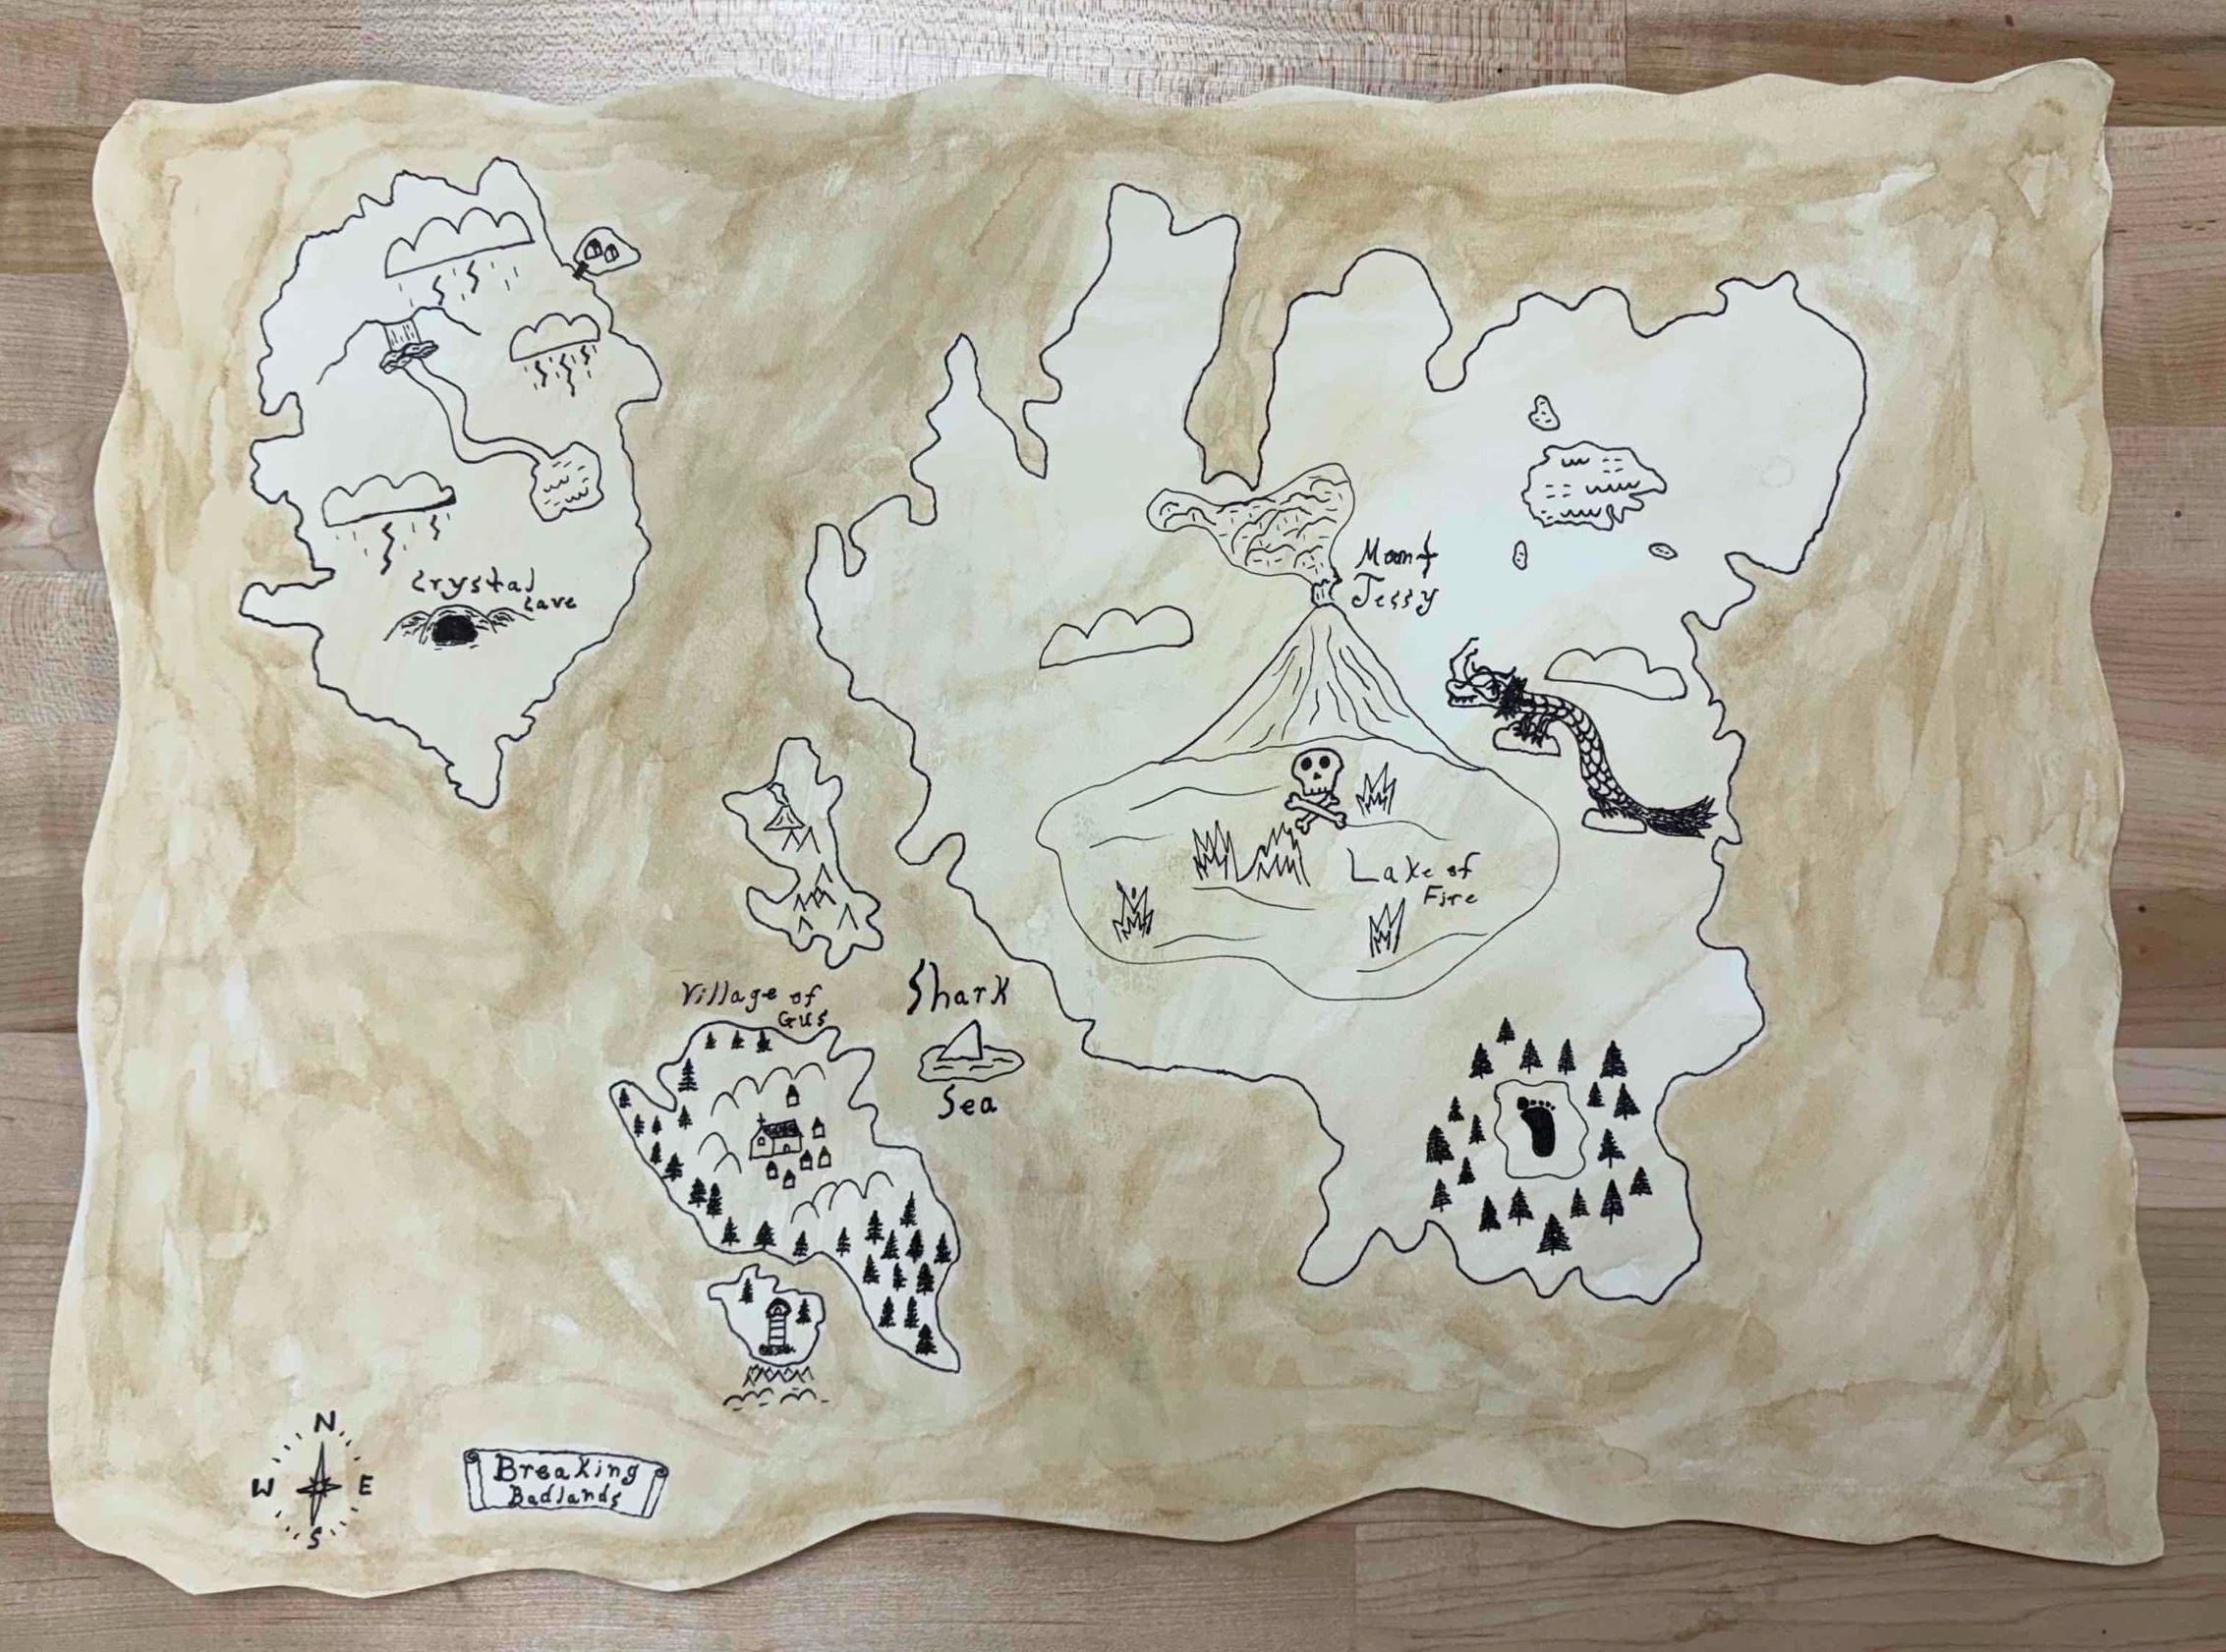 Crystal
Cave
Mount
Jessy
Lake of
Fire
Village of
Gus
Shark
Sea
N
W E
S
Breaking
Badlands